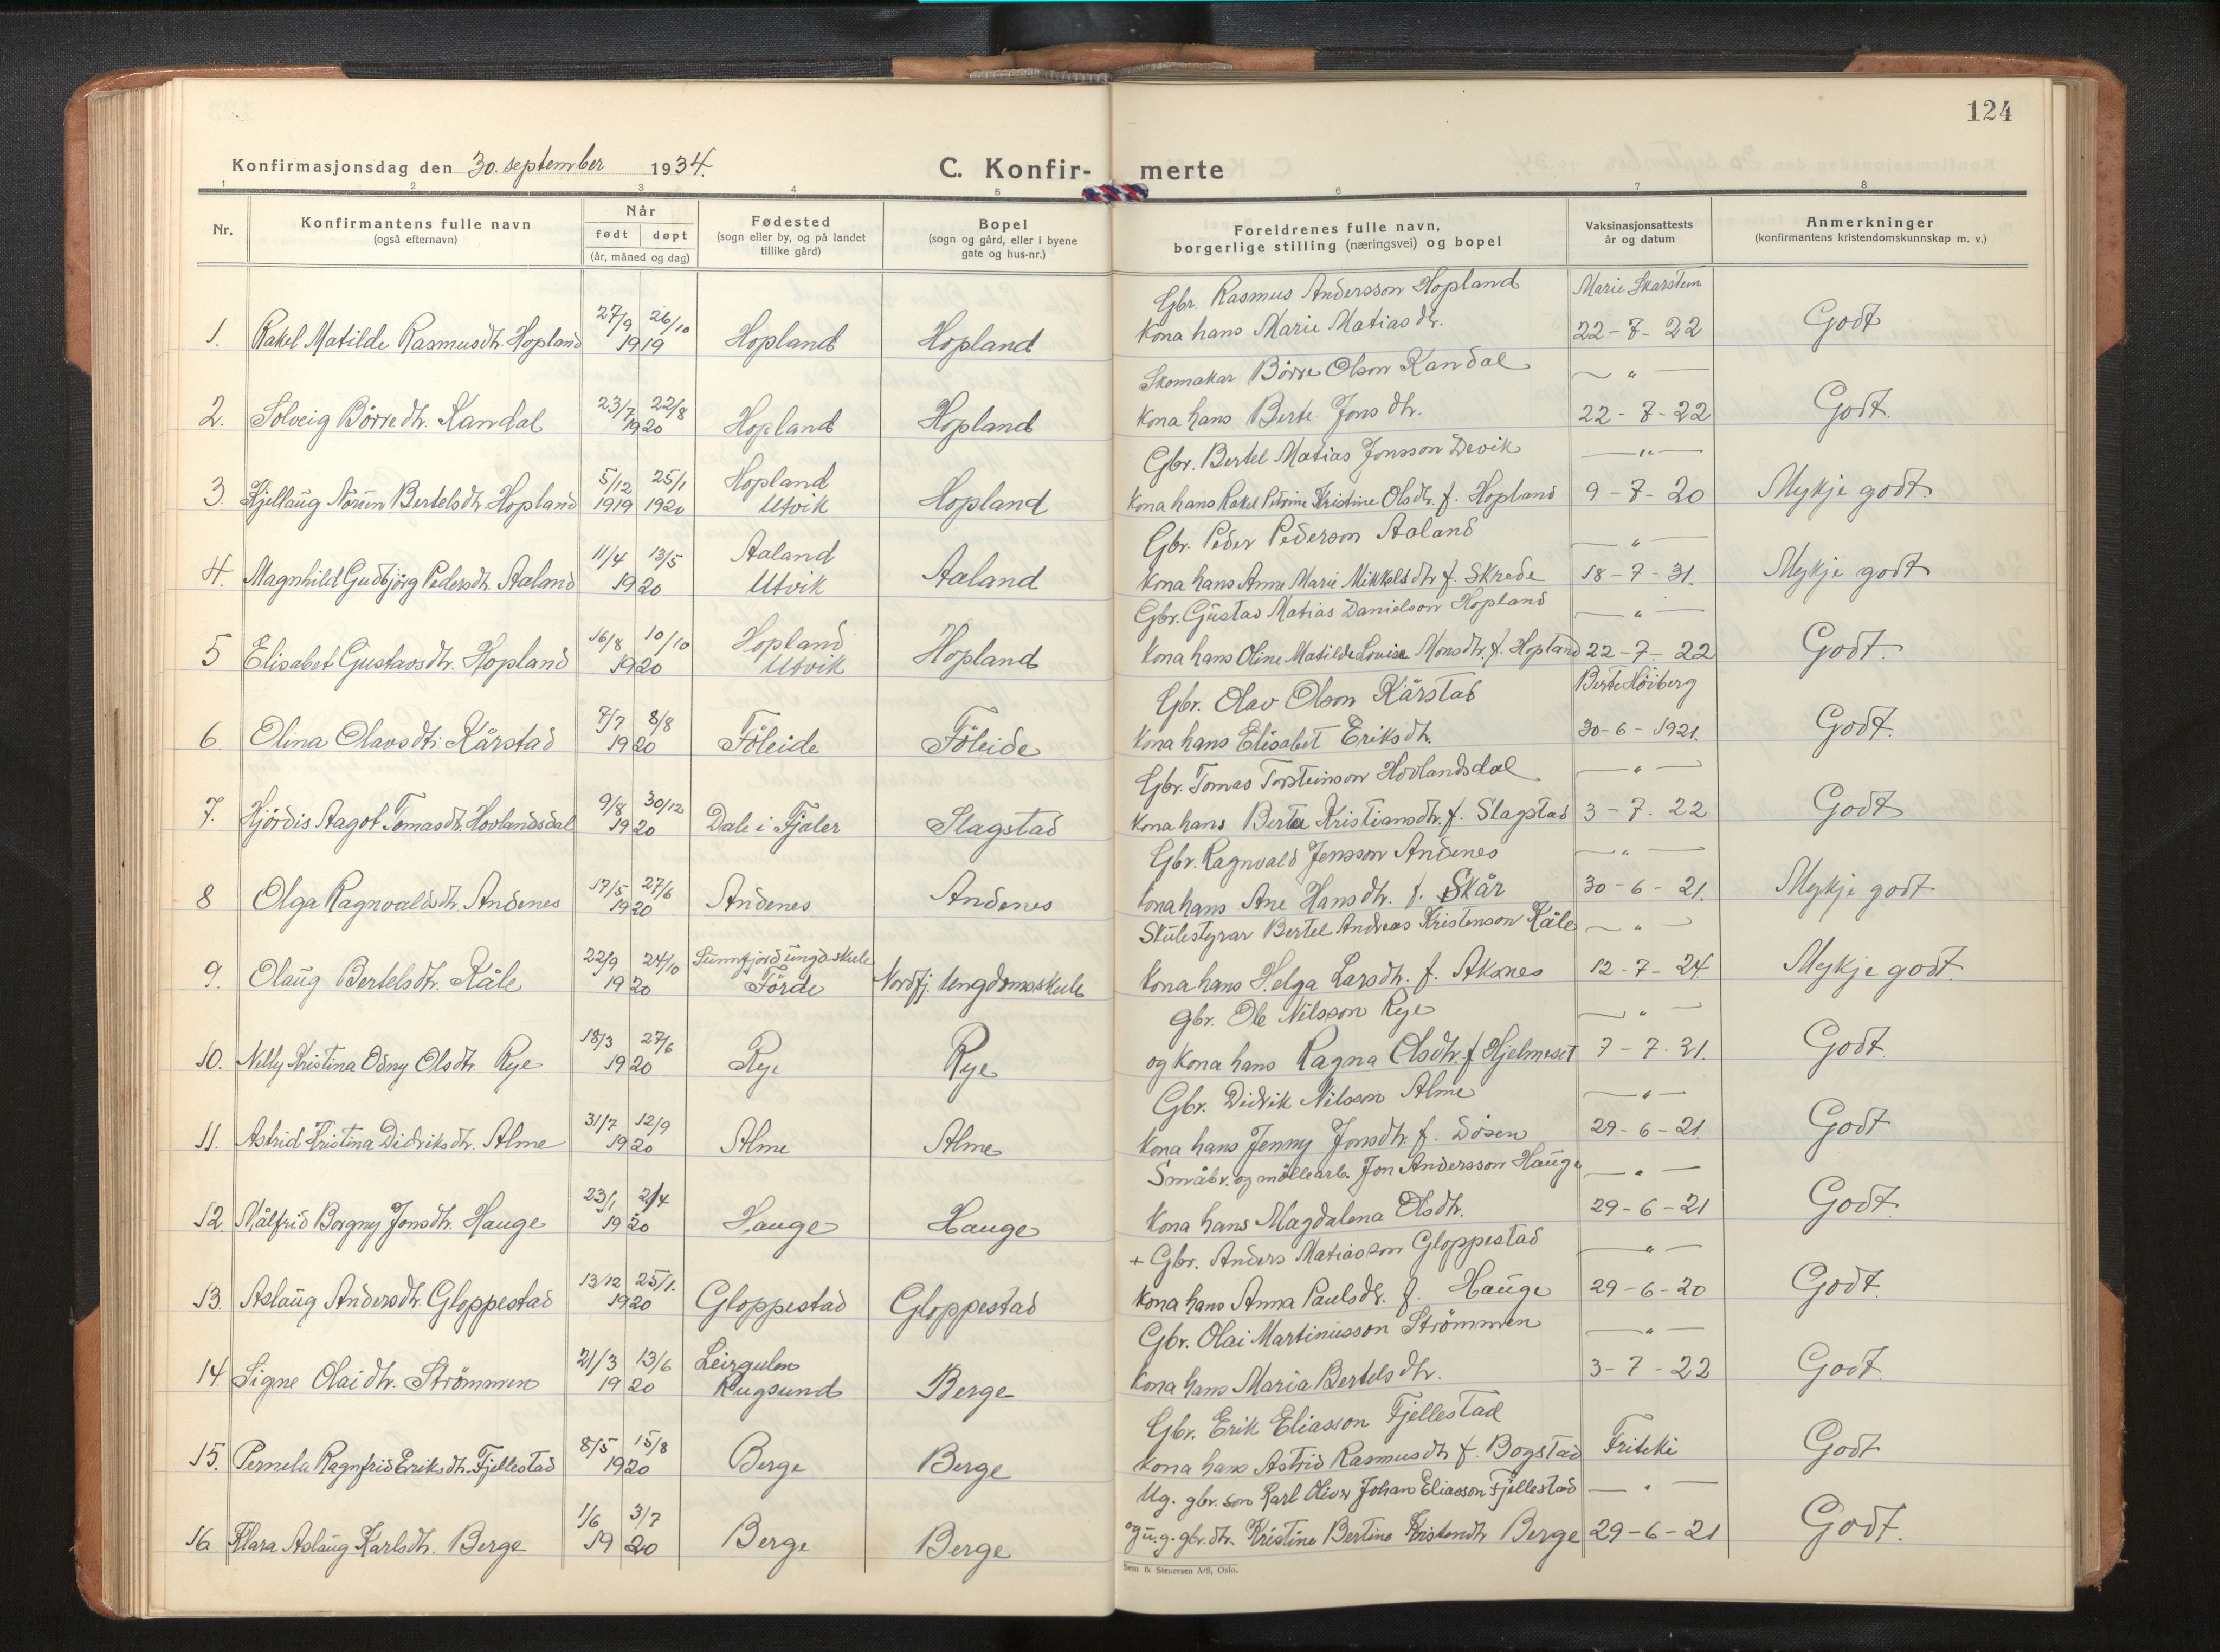 124
Konfirmasjonsdag den 30. september 1934.
C. Konfir- merte
1 2 3 4 5 6 7 8
Nr.
Konfirmantens fulle navn
(også efternavn)
Når
født døpt
(år, måned og dag)
Fødested
(sogn eller by, og på landet
tillike gård)
Bopel
(sogn og gård, eller i byene
gate og hus-nr.)
Foreldrenes fulle navn,
borgerlige stilling (næringsvei) og bopel
Vaksinasjonsattests
år og datum
Anmerkninger
(konfirmantens kristendomskunnskap m. v.)
Gbr. Rasmus Andersson Hopland Marie Skarstein
27/9 26/10
1. Rakel Matilde Rasmusdtr. Hopland 1919 Hopland Hopland Kona hans Marie Matiasdtr. 22-7-22 Godt
Skomakar Börre Olson Kandal — " —
23/7 22/8
2. Solveig Börredtr. Kandal 1920 Hopland Hopland Kona hans Berte Jonsdtr. 22-7-22 Godt.
Gbr. Bertel Matias Jonsson Devik — " —
5/12 25/1 Hopland
3. Kjellaug Norunn Bertelsdtr. Hopland 1919 1920 Utvik Hopland Kona hans Rakel Petrine Kristine Olsdtr. f. Hopland 9-7-20 Mykje godt.
Gbr. Peder Pederson Aaland — " —
11/4 13/5 Aaland
4. Magnhild Gudbjörg Pedersdtr. Aaland 1920 Utvik Aaland Kona hans Anne Marie Mikkelsdtr f. Skrede 18-7-31. Mykje godt
Gbr. Gustav Matias Danielson Hopland — " —
16/8 10/10 Hopland
5 Elisabet Gustavsdtr. Hopland 1920 Utvik Hopland Kona hans Oline Matilde Louise Monsdtr. f. Hopland 22-7-22 Godt.
Gbr. Olav Olson Kårstad Berte Höiberg
7/7 8/8
6. Olina Olavsdtr. Kårstad 1920 Föleide Föleide Kona hans Elisabet Eriksdtr. 30-6-1921. Godt.
Gbr. Tomas Torsteinson Hovlandsdal — " —
9/8 30/12
7. Hjördis Aagot Tomasdtr. Hovlandsdal 1920 Dale i Fjaler Slagstad Kona hans Berta Kristiansdtr. f. Slagstad 3-7-22 Godt
Gbr. Ragnvald Jensson Andenes — " —
17/5 27/6
8 Olga Ragnvaldsdtr. Andenes 1920 Andenes Andenes Kona hans Ane Hansdtr. f. Skår 30-6-21. Mykje godt
Skulestyrar Bertel Andreas Kristenson Råle — " —
22/9 24/10 Sunnfjord ungd.skule
9. Olaug Bertelsdtr. Råle 1920 Förde Nordfj. Ungdomsskule Kona hans Helga Larsdtr. f. Aksnes 12-7-24 Mykje godt.
gbr. Ole Nilsson Rye — " —
18/3 27/6
10. Nelly Kristina Odny Olsdtr. Rye 1920 Rye Rye og Kona hans Ragna Olsdtr. f Hjelmeset 7-7-21. Godt.
Gbr. Didrik Nilsson Alme — " —
31/7 12/9
11. Astrid Kristina Didriksdtr. Alme 1920 Alme Alme Kona hans Jenny Jonsdtr. f. Dösen 29-6-21. Godt
Småbr. og möllearb. Jon Andersson Hauge — " —
23/1 2/4
12. Målfrid Borgny Jonsdtr. Hauge 1920 Hauge Hauge Kona hans Magdalena Olsdtr. 29-6-21 Godt.
+ Gbr. Anders Matiasson Gloppestad — " —
13/12 25/1.
13. Aslaug Andersdtr. Gloppestad 1920 Gloppestad Gloppestad Kona hans Anna Paulsdtr. f. Hauge 29-6-20 Godt.
Gbr. Olai Martinusson Strömmen — " —
21/3 13/6 Leirgulen
14. Signe Olaidtr. Strömmen 1920 Rugsund Berge Kona hans Maria Bertelsdtr. 3-7-22 Godt.
Gbr. Erik Eliasson Fjellestad
8/5 15/8
15. Pernela Ragnfrid Eriksdtr. Fjellestad 1920 Berge Berge Kona hans Astrid Rasmusdtr f. Bogstad Friteke Godt
Ug. gbr. son Karl Oliver Johan Eliasson Fjellestad — " —
1/6 3/7
16 Klara Aslaug Karlsdtr. Berge 1920 Berge Berge og u.g. gbr. dtr. Kristine Bertine Kristendtr Berge 29-6-21 Godt.
Sem & Stenersen A/S, Oslo.